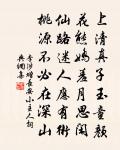 上清真子玉童顏
花態嬌羞月思閑
仙路迷人應有術
桃源不必在深山
李涉贈長安小主人詞
典網集